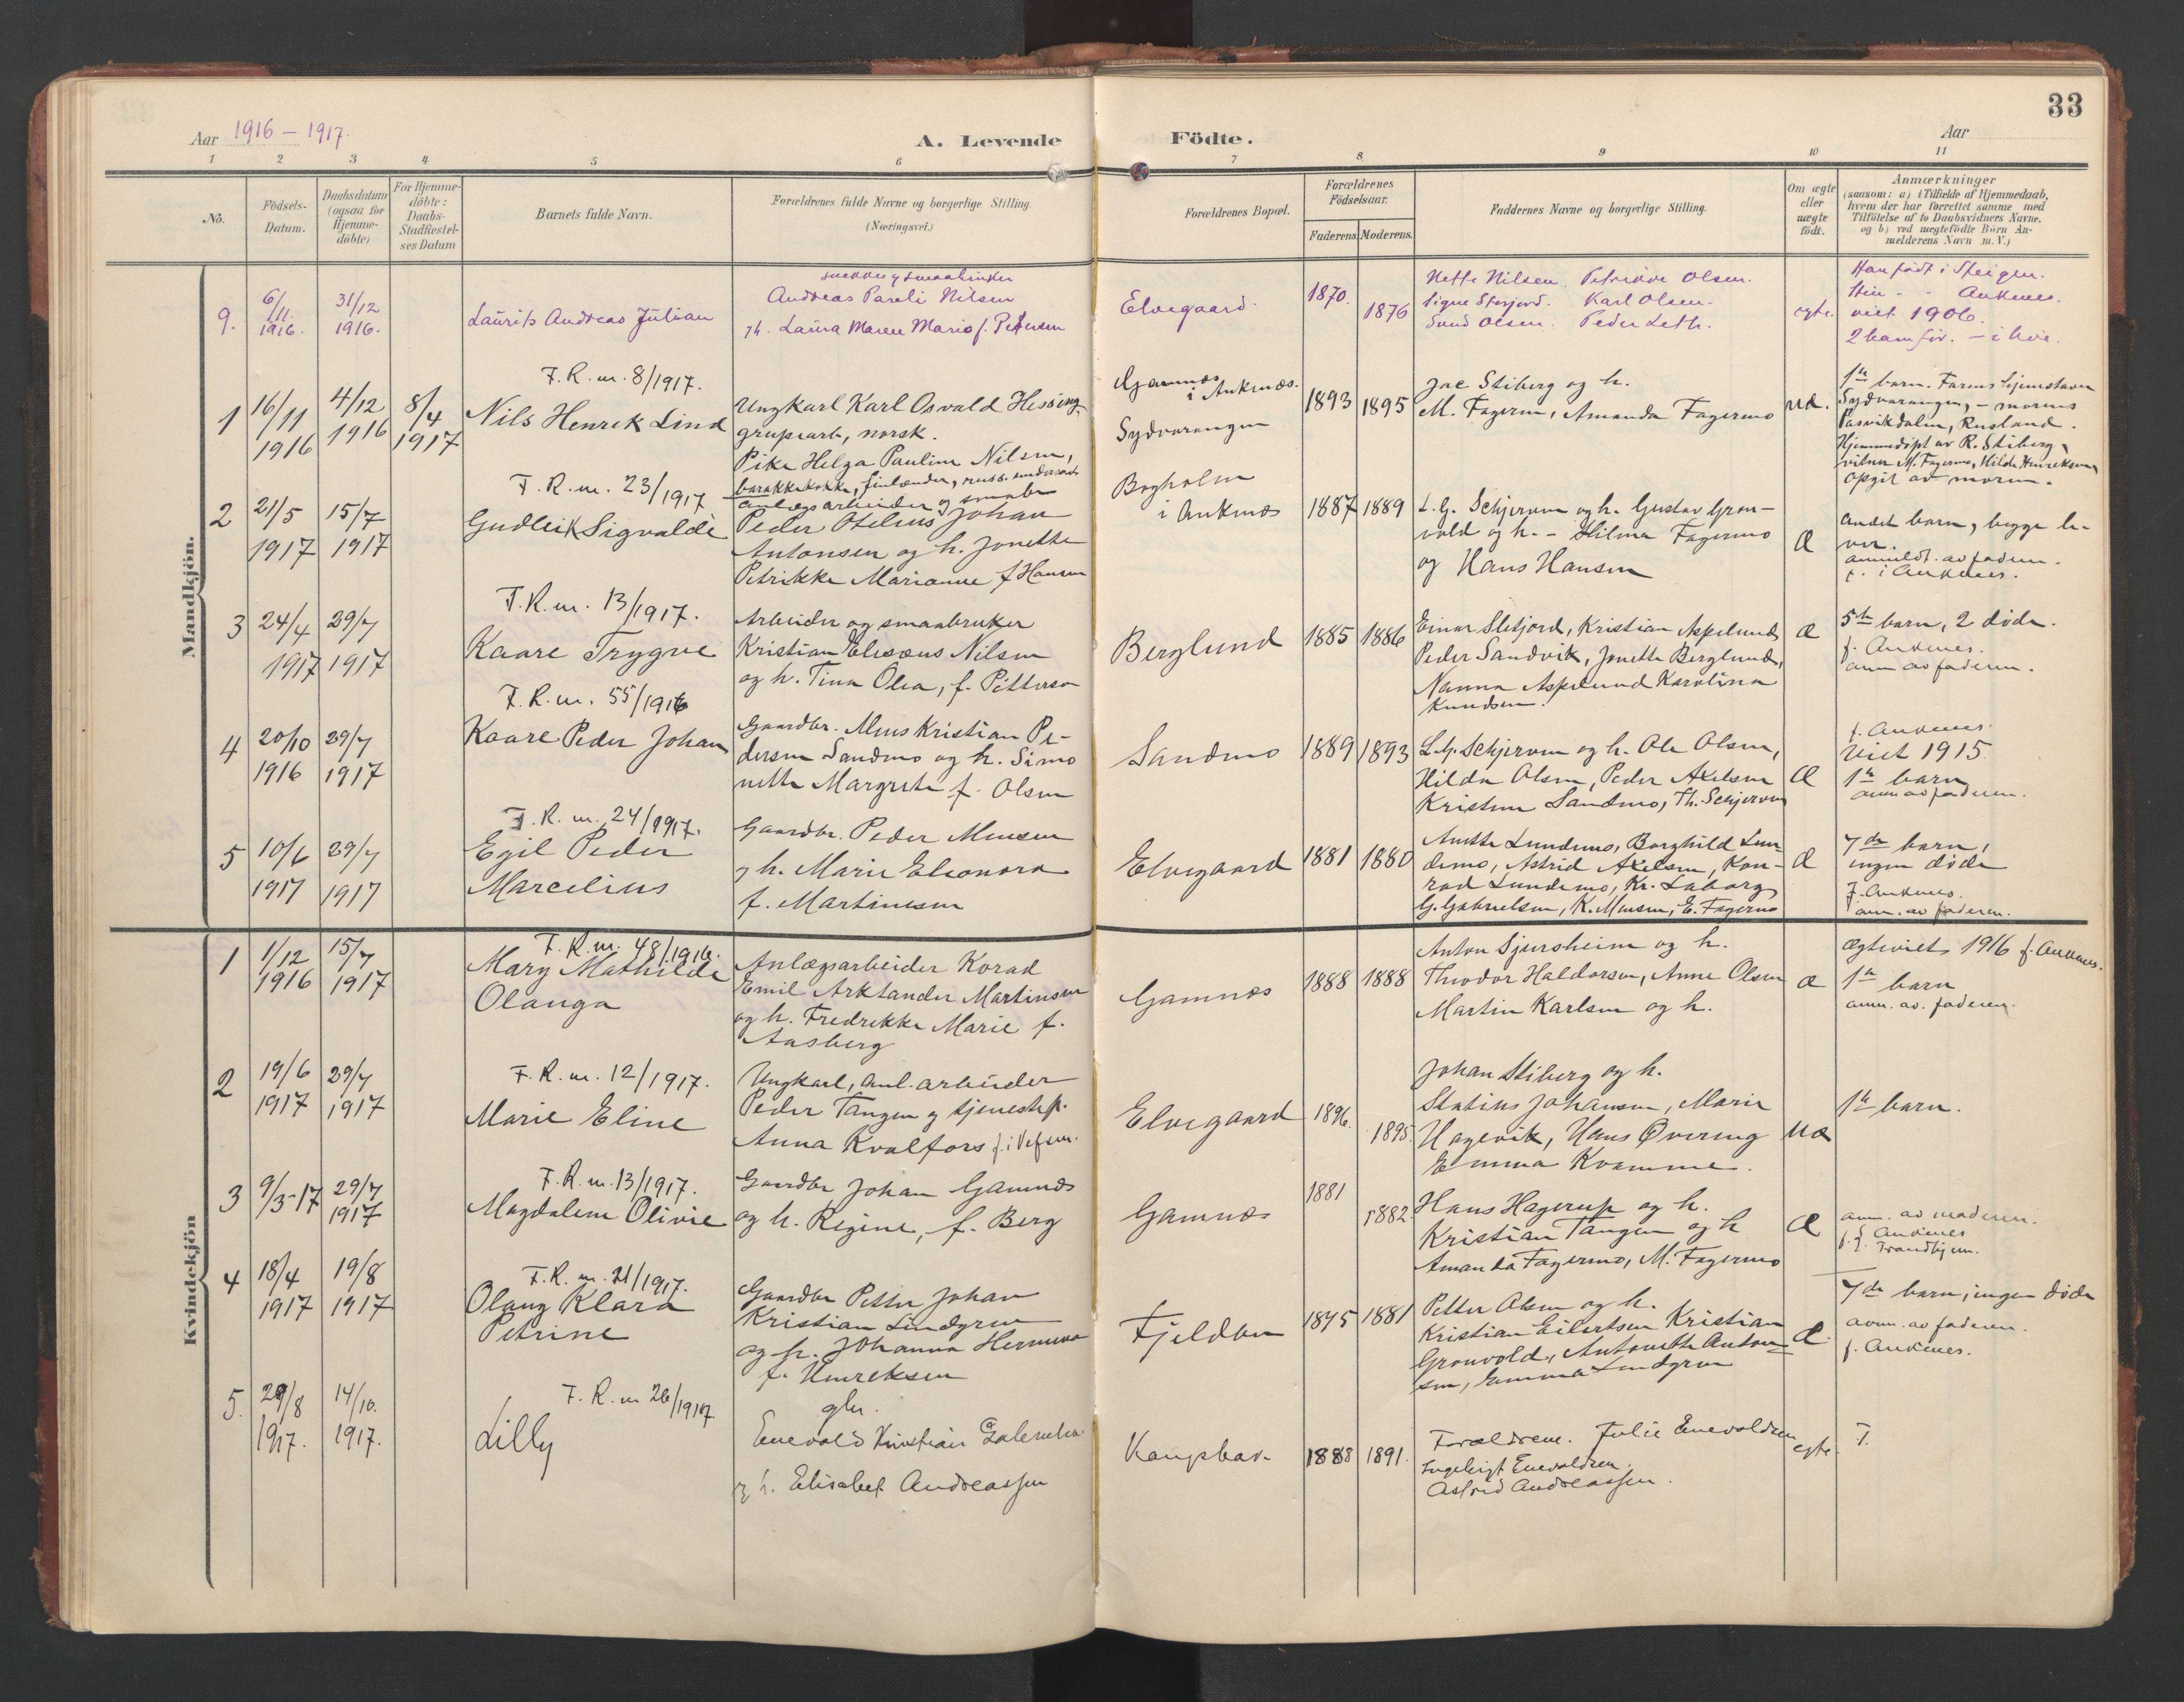 33
Aar 1916 – 1917.
A. Levende Födte.
Aar
1 2 3 4 5 6 7 8 9 10 11
No.
Födsels-Datum.
Daabsdatum (ogsaa for Hjemme-döbte)
For Hjemme-döbte: Daabs-Stadfæstel-ses Datum
Barnets fulde Navn.
Forældrenes fulde Navne og borgerlige Stilling. (Næringsvei.)
Forældrenes Bopæl.
Forældrenes Födselsaar.
Faderens. Moderens.
Faddernes Navne og borgerlige Stilling.
Om ægte eller uægte födt.
Anmærkninger
(saasom: a) i Tilfælde af Hjemmedaab,
hvem der har forrettet samme med
Tilföielse af to Daabsvidners Navne,
og b) ved uægtefödte Börn An-
melderens Navn m. V.)
Mandkjön.
9. 6/11. 1916. 31/12 1916.
Laurits Andreas Julian
Andreas Pareli Nilsen
Laura Maren Marie f. Pettersen
Elvegaard. 1870. 1876
Nette Nilsen. Petrikke Olsen.
Signe Storjord. Karl Olsen.
Olsen. Peder Leth.
egte.
Han född i Steigen.
Hun - - Ankenes.
viet 1906.
F. R. nr. 8/1917.
1 16/11 1916 4/12 1916 8/4 1917
Nils Henrik Lind
Ungkarl Karl Osvald Hessing,
grubearb, norsk.
Pike Helga Pauline Nilsen,
barakkekokke, finlænder, russ. undersaat
Gamnes i Ankenæs.
Sydvarangen
1893 1895
Jac Stiberg og h.
M. Fagermo, Amanda Fagermo
uæ.
1ste barn. Farens hjemstavn
Sydvarangen, – morens
Pasvikdalen, Rusland.
Hjemmedøpt av R. Stiberg,
vitner M. Fagermo, Hilda Henriksen,
opgit av moren.
F. R. nr. 23/1917
2 21/5 1917 15/7 1917
Gudleik Sigvalde
anlægsarbeider og smaabr
Peder Otelius Johan
Antonsen og h. Jonette
Petrikke Marianne f. Hansen
Bogholm i Ankenæs
1887 1889
L. G. Schjerven og h. Gustav Gron-
vold og h. – Hilma Fagermo
og Hans Hansen
Æ
Andet barn, begge le-
ver.
anmeldt. av faderen.
f. i Ankenes.
F. R. nr. 13/1917.
3 24/4 1917 29/7 1917
Kaare Trygve
Arbeider og smaabruker
Kristian Elisæus Nilsen
og h. Tina Olea, f. Pettersen
Berglund 1885 1886
Einar Sletjord, Kristian Aspelund
Peder Sandvik, Jonette Berglund,
Nanna Aspelund Karolina
Knudsen.
Æ
5te barn, 2 døde.
f. Ankenes.
anm av faderen.
F. R. nr. 55/1916
4 20/10 1916 29/7 1917
Kaare Peder Johan
Gaardbr. Mons Kristian Pe-
dersen Sandmo og h. Simo
nette Margrete f. Olsen
Sandmo 1889 1893
L. G. Schjerven og h. Ole Olsen,
Hilda Olsen, Peder Axelsen
Kristine Sandmo, Th. Schjerven
Æ
f. Ankenes.
Viet 1915.
1ste barn
anm av faderen.
F. R. nr. 24/1917.
5 10/6 1917 29/7 1917
Egil Peder
Marcelius
Gaardbr. Peder Monsen
og h. Marie Eleonora
f. Martinsen
Elvegaard 1881 1880
Anette Lundemo, Borghild Lun-
demo, Astrid Axelsen, Kon-
rad Lundemo, Kr. Laborg
G. Gabrielsen, K. Monsen, E. Fagermo
Æ
7de barn,
ingen døde
f. Ankenes.
anm. av faderen.
Kvindekjön
F. R. nr. 48/1916.
1 1/12 1916 15/7 1917
Mary Mathilde
Olanga
Anlægsarbeider Korad
Emil Arktander Martinsen
og h. Fredrikke Marie f.
Aasberg
Gamnæs 1888 1888
Anton Sjursheim og h.
Theodor Haldorsen, Anne Olsen
Martin Karlsen og h.
Æ
Ægteviet 1916 f. Ankenes.
1ste barn
anm. av. faderen.
F. R. nr. 12/1917.
2 19/6 1917 29/7 1917
Marie Eline
Ungkarl, anl. arbeider
Peder Tangen og tjenestep.
Anna Kvalfors f. i Vefsen.
Elvegaard 1896. 1895.
Johan Stiberg og h.
Statius Johansen, Marie
Hagevik, Hans Øvereng
Emma Kvamme.
Uæ
1ste barn.
F. R. nr. 13/1917.
3 9/3-17 29/7 1917
Magdalene Olivie
Gaardbr Johan Gamnæs
og h. Regine, f. Berg
Gamnæs 1881 1882.
Hans Hagerup og h.
Kristian Tangen og h
Amanda Fagermo, M. Fagermo
Æ
anm. av moderen.
f. i Ankenes
f. i Trondhjem.
F. R. nr. 21/1917.
4 18/4 1917 19/8 1917
Olaug Klara
Petrine
Gaardbr Petter Johan
Kristian Lindgren
og h. Johanna Hermine
f. Henriksen
Fjeldbu 1875 1881
Petter Olsen og h.
Kristian Eilertsen Kristian
Gronvold, Antonette Anton-
sen, Emma Lindgren
Æ.
7de barn, ingen døde
anm. av faderen.
f. Ankenes.
F. R. nr 26/1917
5. 29/8 1917. 14/10. 1917.
Lilly
gbr.
Enevold Kristian
og h. Elisabet Andreassen
1888 1891.
Forældrene. Julie Enevoldsen
Ingebrigt Enevoldsen.
Astrid Andreassen.
egte
F.